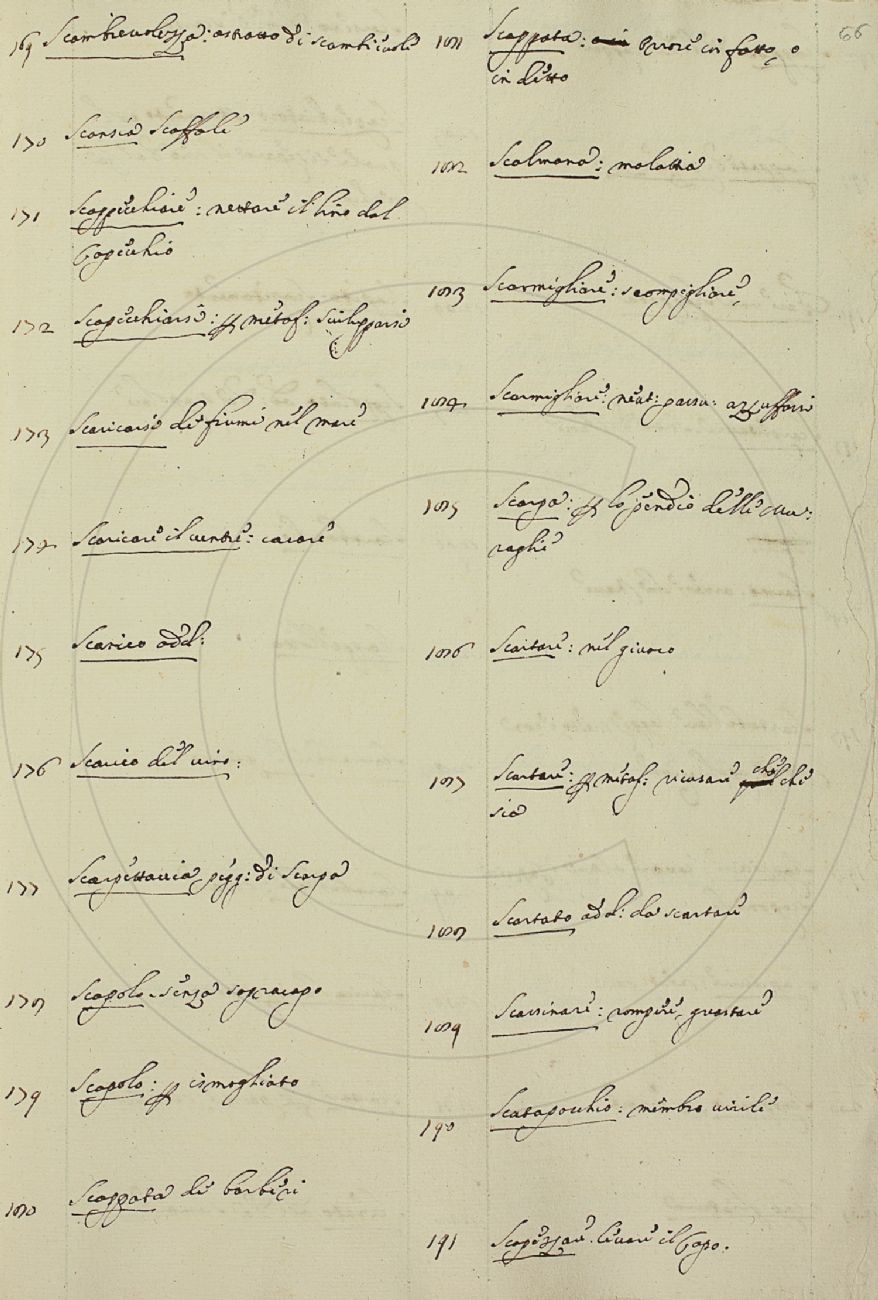 169 Scambievolezza: astratto di scambievole
170 Scansia Scaffale
171 Scappecchiare: nettare il lino dal
Capecchio
172 Scapecchiarsi: per metaf: svilupparsi
173 Scaricarsi de fiumi nel mare
174 Scaricare il ventre: cacare
175 Scarico add:
176 Scarico del vino:
177 Scarpettaccia pegg: di Scarpa
178 Scapolo senza sopracapo
179 Scapolo: per ismogliato
180 Scappata de barberi
66
181 Scappata: errore in fatto, o
in detto
182 Scalmana: malattia
183 Scarmigliare: scompigliare,
184 Scarmigliare: neut: pass: azzuffarsi
185 Scarpa: per lo pendio delle Mu:
raglie
186 Scartare: nel giuoco
187 Scartare: per metaf: ricusare che che
sia
188 Scartato add: da scartare
189 Scassinare: rompere, guastare
190 Scatapocchio: membro virile
191 Scapezzare. levare il Capo.